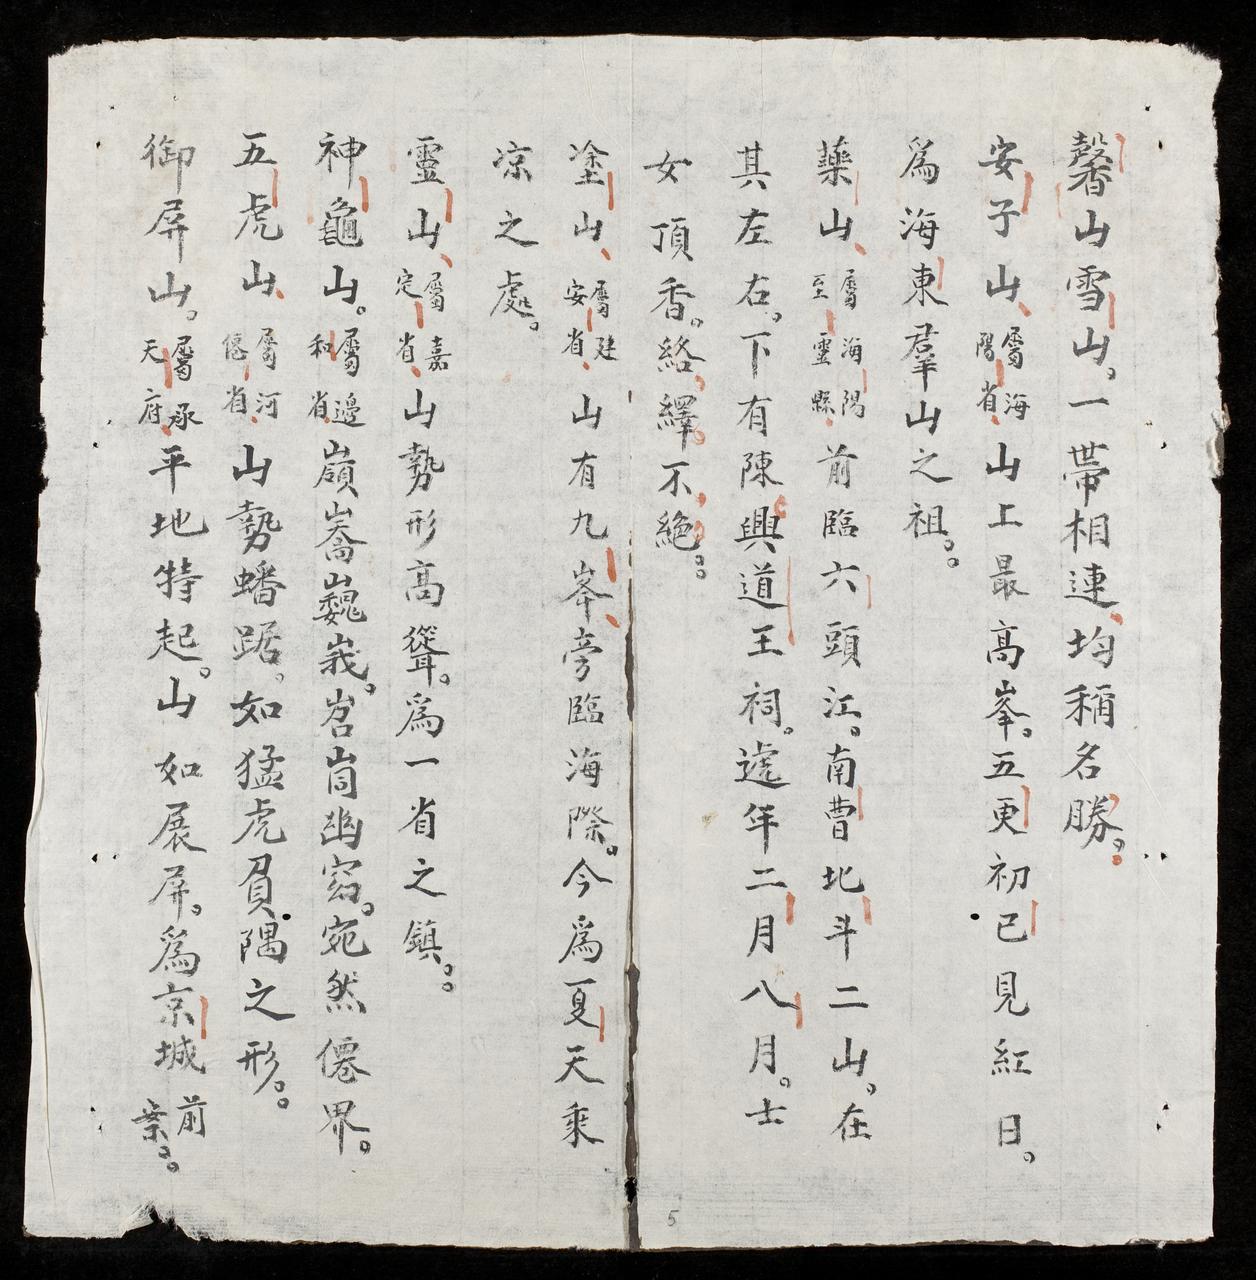 馨山雪山。一帶相連、均稱名勝。
安子山、屬海陽省、山上最高峯。五更初已見紅日。
爲海東羣山之祖。
藥山、屬海陽至靈縣、前臨六頭江。南曹北斗二山。在
其左右。下有陳興道王祠。遞年二月八月。士
女頂香。絡繹不絕。
塗山、屬建安省、山有九峯、旁臨海際。今爲夏天乘
凉之處。
靈山、屬嘉定省、山勢形高聳。爲一省之鎮。
神龜山。屬邊和省、嶺嵡巍峩。岩崗幽窈。宛然僊界。
五虎山、屬河僊省、山勢蟠踞。如猛虎負隅之形。
御屏山。屬承天府、平地特起。山如展屏。爲京城前案。
5